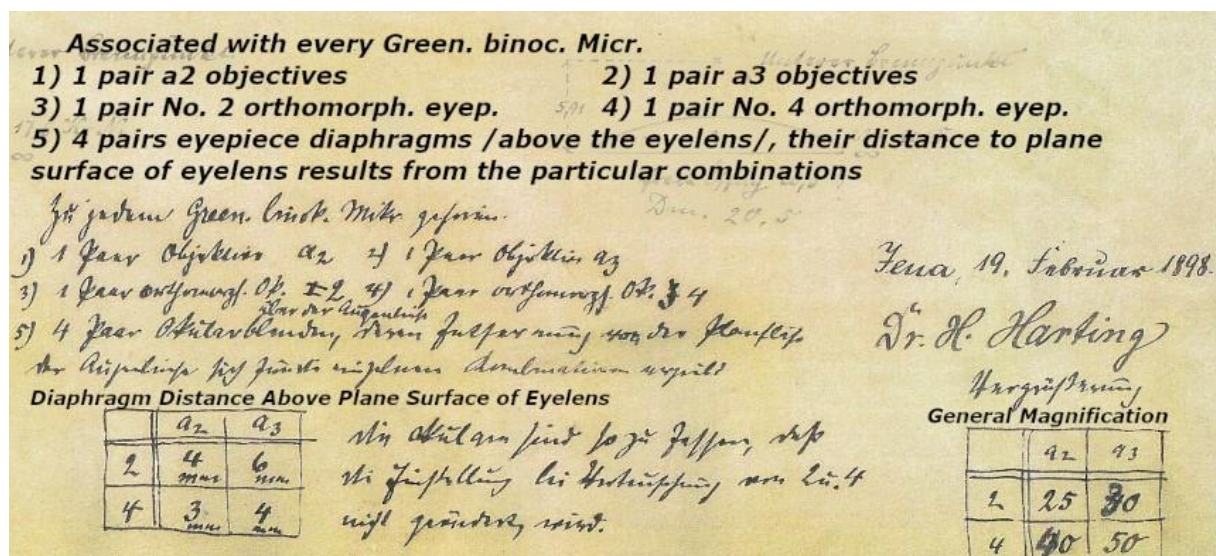 Associated with every Green. binoc. Micr.
1) 1 pair a2 objectives 2) 1 pair a3 objectives
3) 1 pair No. 2 orthomorph. eyep. 4) 1 pair No. 4 orthomorph. eyep.
5) 4 pairs eyepiece diaphragms /above the eyelens/, their distance to plane
surface of eyelens results from the particular combinations
Dm. 20,5
Zu jedem Green. binok. Mikr. gehören.
1) 1 Paar Objektive a2 2) 1 Paar Objektive a3
Jena, 19. Februar 1898.
3) 1 Paar orthomorph. Ok. 2 4) 1 Paar orthomorph. Ok. 4
über der Augenlinse
5) 4 Paar Okularblenden, deren Entfernung von der Planfläche
Dr. H. Harting
der Augenlinse sich für die einzelnen Kombinationen ergibt
Vergrößerung
Diaphragm Distance Above Plane Surface of Eyelens
General Magnification
a2 a3
2 4 mm 6 mm
4 3 mm 4 mm
die Okulare sind so zu fassen, daß
die Einstellung bei Vertauschung von 2 u. 4
nicht geändert wird.
a2 a3
2 25 30
4 40 50